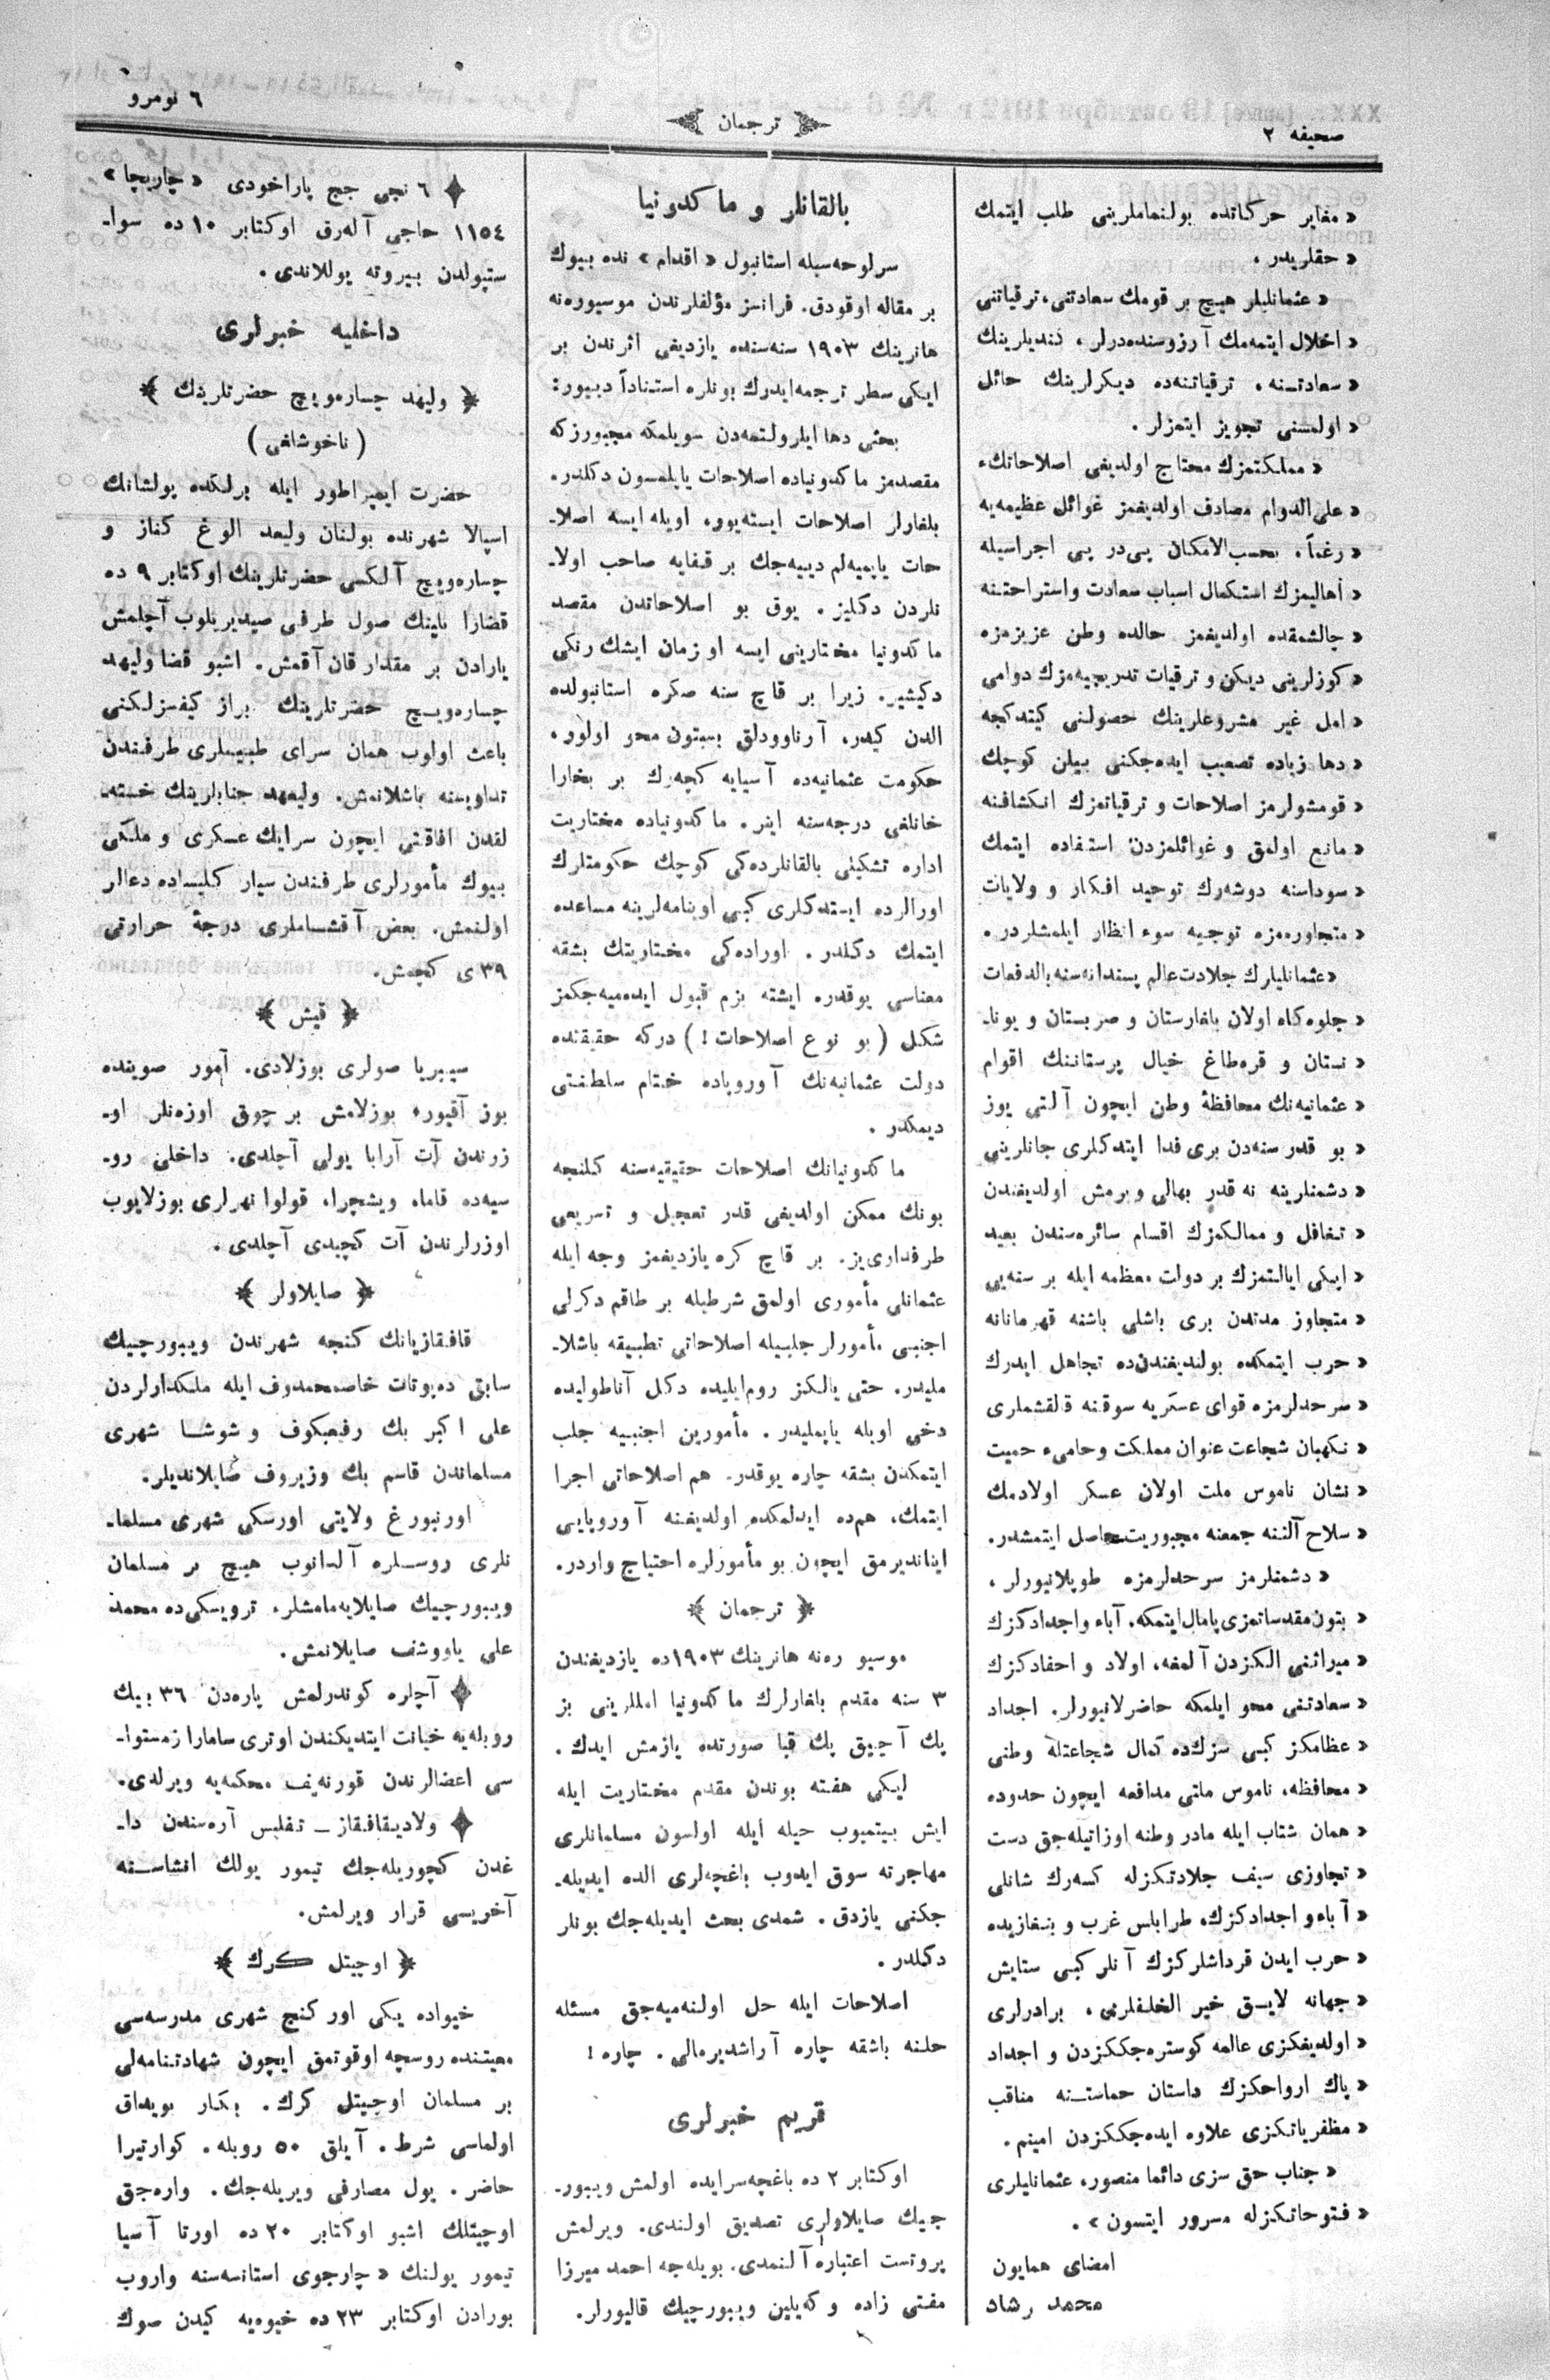 صحيفه ٢
ترجمان
٦ نومرو
« مغاير حركاتده بولنماملرينى طلب ايتمك
« حقلريدر .
« عثمانليلر هيچ بر قومك سعادتنى، ترقياتنى
« اخلال ايتمه‌مك آرزوسنده‌درلر، كنديلرينك
« سعادتنه، ترقياتنه‌ده ديكرلرينك حائل
« اولمسنى تجويز ايتمزلر .
« مملكتمزك محتاج اولديغى اصلاحاتك،
« على الدوام مصادف اولديغمز غوائل عظيمه‌يه
« رغماً، بحسب الامكان پى در پى اجراسيله
« أهاليمزك استكمال اسباب سعادت واستراحتنه
« چالشمقده اولديغمز حالده وطن عزيزمزه
« كوزلرينى ديكن و ترقيات تدريجيه‌مزك دوامى
« امل غير مشروعلرينك حصولنى كيتدكجه
« دها زياده تصعيب ايده‌جكنى بيلن كوچك
« قومشولرمز اصلاحات و ترقياتمزك انكشافنه
« مانع اولمق و غوائلمزدن استفاده ايتمك
« سوداسنه دوشه‌رك توحيد افكار و ولايات
« متجاوره‌مزه توجيه سوء انظار ايلمشلردر.
« عثمانليلرك جلادت عالم پسندانه‌سنه بالدفعات
« جلوه‌كاه اولان بلغارستان و صربستان و يونا-
« نستان و قره‌طاغ خيال پرستاننك اقوام
« عثمانيه‌نك محافظهٔ وطن ايچون آلتى يوز
« بو قدر سنه‌دن برى فدا ايتدكلرى جانلرينى
« دشمنلرينه نه قدر بهالى ويرمش اولديغندن
« تغافل و ممالكمزك اقسام سائره‌سندن بعيد
« ايكى ايالتمزك بر دولت معظمه ايله بر سنه‌يى
« متجاوز مدتدن برى باشلى باشنه قهرمانانه
« حرب ايتمكده بولنديغندن‌ده تجاهل ايدرك
« سرحدلرمزه قواى عسكريه سوقنه قالقشملرى
« نكهبان شجاعت عنوان مملكت و حامىء حميت
« نشان ناموس ملت اولان عسكر اولادمك
« سلاح آلتنه جمعنه مجبوريت حاصل ايتمشدر.
« دشمنلرمز سرحدلرمزه طوپلانيورلر،
« بتون مقدساتمزى پامال ايتمكه، آباء واجدادكزك
« ميراثنى الكزدن آلمغه، اولاد و احفادكزك
« سعادتنى محو ايلمكه حاضرلانيورلر. اجداد
« عظامكز كبى سزكده كمال شجاعتله وطنى
« محافظه، ناموس ملتى مدافعه ايچون حدوده
« همان شتاب ايله مادر وطنه اوزاتيله‌جق دست
« تجاوزى سيف جلادتكزله كسه‌رك شانلى
« آباء و اجدادكزك، طرابلس غرب و بنغازيده
« حرب ايدن قرداشلركزك آنلر كبى ستايش
« جهانه لايق خير الخلفلرى، برادرلرى
« اولديغكزى عالمه كوستره‌جككزدن و اجداد
« پاك ارواحكزك داستان حماستنه مناقب
« مظفرياتكزى علاوه ايده‌جككزدن امينم.
« جناب حق سزى دائما منصور، عثمانليلرى
« فتوحاتكزله مسرور ايتسون ».
امضاى همايون
محمد رشاد
بالقانلر و ماكدونيا
سرلوحه‌سيله استانبول « اقدام » نده بيوك
بر مقاله اوقودق. فرانسز مؤلفلرندن موسيورنه
هانرينك ١٩٠٣ سنه‌سنده يازديغى اثرندن بر
ايكى سطر ترجمه ايدرك بونلره استناداً ديیور:
بحثى دها ايلرولتمه‌دن سويلمكه مجبورزكه
مقصدمز ماكدونياده اصلاحات ياپلمسون دكلدر.
بلغارلر اصلاحات ايسته‌يور، اويله ايسه اصلا-
حات ياپميه‌لم دييه‌جك بر قفايه صاحب اولا-
نلردن دكليز. يوق بو اصلاحاتدن مقصد
ماكدونيا مختاريتى ايسه او زمان ايشك رنكى
دكيشير. زيرا بر قاچ سنه صكره استانبولده
الدن كيدر، آرناوودلق بسبتون محو اولور،
حكومت عثمانيه‌ده آسيايه كچه‌رك بر بخارا
خانلغى درجه‌سنه اينر. ماكدونياده مختاريت
اداره تشكيلى بالقانلرده‌كى كوچك حكومتلرك
اورالرده ايستدكلرى كبى اوينامه‌لرينه مساعده
ايتمك دكلدر. اوراده‌كى مختاريتك بشقه
معناسى يوقدر. ايشته بزم قبول ايده‌ميه‌جكمز
شكل (بو نوع اصلاحات!) دركه حقيقتده
دولت عثمانيه‌نك آوروپاده ختام سلطنتى
ديمكدر.
ماكدونيانك اصلاحات حقيقيه‌سنه كلنجه
بونك ممكن اولديغى قدر تعجيل و تسريعى
طرفدارى‌يز. بر قاچ كره يازديغمز وجه ايله
عثمانلى مأمورى اولمق شرطيله بر طاقم دكرلى
اجنبى مأمورلر جلبيله اصلاحاتى تطبيقه باشلا-
مليدر. حتى يالكز روم‌ايليده دكل آناطوليده
دخى اويله ياپمليدر. مأمورين اجنبيه جلب
ايتمكدن بشقه چاره يوقدر. هم اصلاحاتى اجرا
ايتمك، هم‌ده ايدلمكده اولديغنه آوروپايى
اينانديرمق ايچون بو مأمورلره احتياج واردر.
﴿ ترجمان ﴾
موسيو رەنه هانرينك ١٩٠٣ده يازديغندن
٣ سنه مقدم بلغارلرك ماكدونيا امللرينى بز
پك آچيق پك قبا صورتده يازمش ايدك.
ايكى هفته بوندن مقدم مختاريت ايله
ايش بيتميوب حيله ايله اولسون مسلمانلرى
مهاجرته سوق ايدوب باغچه‌لرى الده ايديله-
جكنى يازدق. شمدى بحث ايديله‌جك بونلر
دكلدر.
اصلاحات ايله حل اولنه‌ميه‌جق مسئله
حلنه باشقه چاره آراشديرمالى. چاره!
قريم خبرلرى
اوكتابر ٢ ده باغچه‌سرايده اولمش ويبور-
جيك صايلاولرى تصديق اولندى. ويرلمش
پروتست اعتباره آلنمدى. بويله‌جه احمد ميرزا
مفتى زاده و كه‌يلين ويبورچيك قاليورلر.
٦ نجى حج پاراخودى « چاريچا »
١١٥٤ حاجى آله‌رق اوكتابر ١٠ ده سوا-
ستپولدن بيروته يوللاندى.
داخليه خبرلرى
﴿ وليهد چساره‌ويچ حضرتلرينك ﴾
( ناخوشلغى )
حضرت ايمپراطور ايله برلكده پولشانك
اسپالا شهرنده بولنان وليعد الوغ كناز و
چساره‌ويچ آلكسى حضرتلرينك اوكتابر ٩ ده
قضارا بلينك صول طرفى صيديريلوب آچلمش
يارادن بر مقدار قان آقمش. اشبو قضا وليهد
چساره‌ويچ حضرتلرينك براز كيفسزلكنى
باعث اولوب همان سراى طبيبلرى طرفندن
تداويسنه باشلانمش. وليعهد جنابلرينك خسته-
لقدن افاقتى ايچون سرايك عسكرى و ملكى
بيوك مأمورلرى طرفندن سيار كليساده دعالر
اولنمش. بعض آقشاملرى درجهٔ حرارتى
٣٩ى كچمش.
﴿ قيش ﴾
سيبريا صولرى بوزلادى. آمور صوينده
بوز آقيور، بوزلامش بر چوق اوزه‌نلر او-
زرندن آت آرابا يولى آچلدى. داخلى رو-
سيه‌ده قاما، ويشچرا، قولوا نهرلرى بوزلايوب
اوزرلرندن آت كچيدى آچلدى.
﴿ صايلاولر ﴾
قافقازيانك كنجه شهرندن ويبورجيك
سابق ده‌پوتات خاصمحمدوف ايله ملكدارلردن
على اكبر بك رفيعبكوف و شوشا شهرى
مسلماندن قاسم بك وزيروف صايلانديلر.
اورنبورغ ولايتى اورسكى شهرى مسلما-
نلرى روسلره آلدانوب هيچ بر مسلمان
ويبورچيك صايلايه‌مامشلر. ترويسكى‌ده محمد
على ياووشف صايلانمش.
آچلره كوندرلمش پاره‌دن ٣٦ بيك
روبله‌يه خيانت ايتديكندن اوترى سامارا زمستوا-
سى اعضالرندن قورنه‌يف محكمه‌يه ويرلدى.
ولاديقافقاز – تفليس آره‌سندن دا-
غدن كچوريله‌جك تيمور يولك انشاسنه
آخريسى قرار ويرلمش.
﴿ اوچيتل كرك ﴾
خيواده يكى اوركنج شهرى مدرسه‌سى
معيتنده روسچه اوقوتمق ايچون شهادتنامه‌لى
بر مسلمان اوچيتل كرك. بكار بويداق
اولماسى شرط. آيلق ٥٠ روبله. كوارتيرا
حاضر. يول مصارفى ويريله‌جك. واره‌جق
اوچيتلك اشبو اوكتابر ٢٠ ده اورتا آسيا
تيمور يولنك « چارجوى استانسه‌سنه واروب
بورادن اوكتابر ٢٣ ده خيوه‌يه كيدن صوك